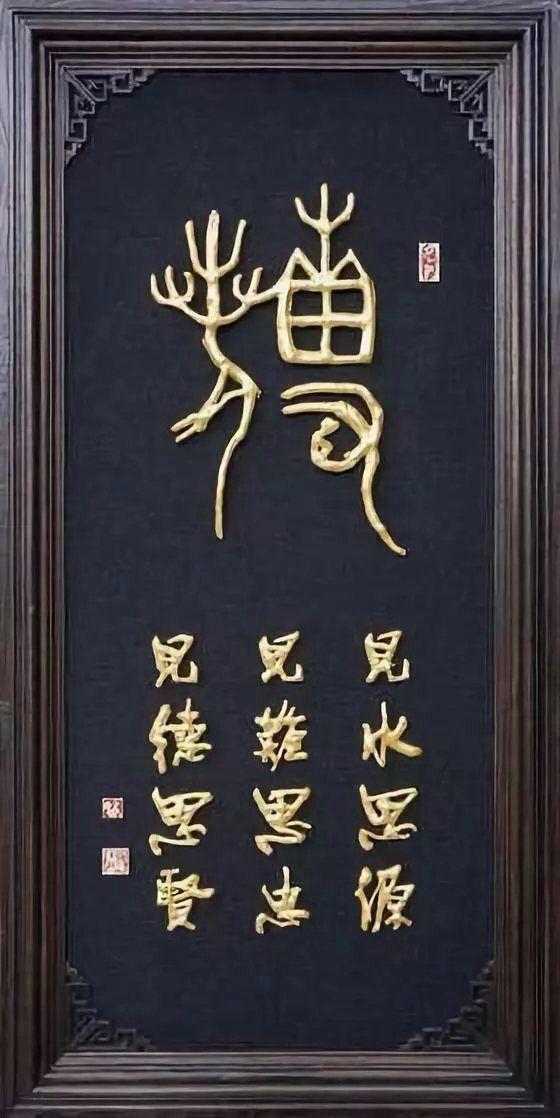 見水思源
見難思忠
見德思賢